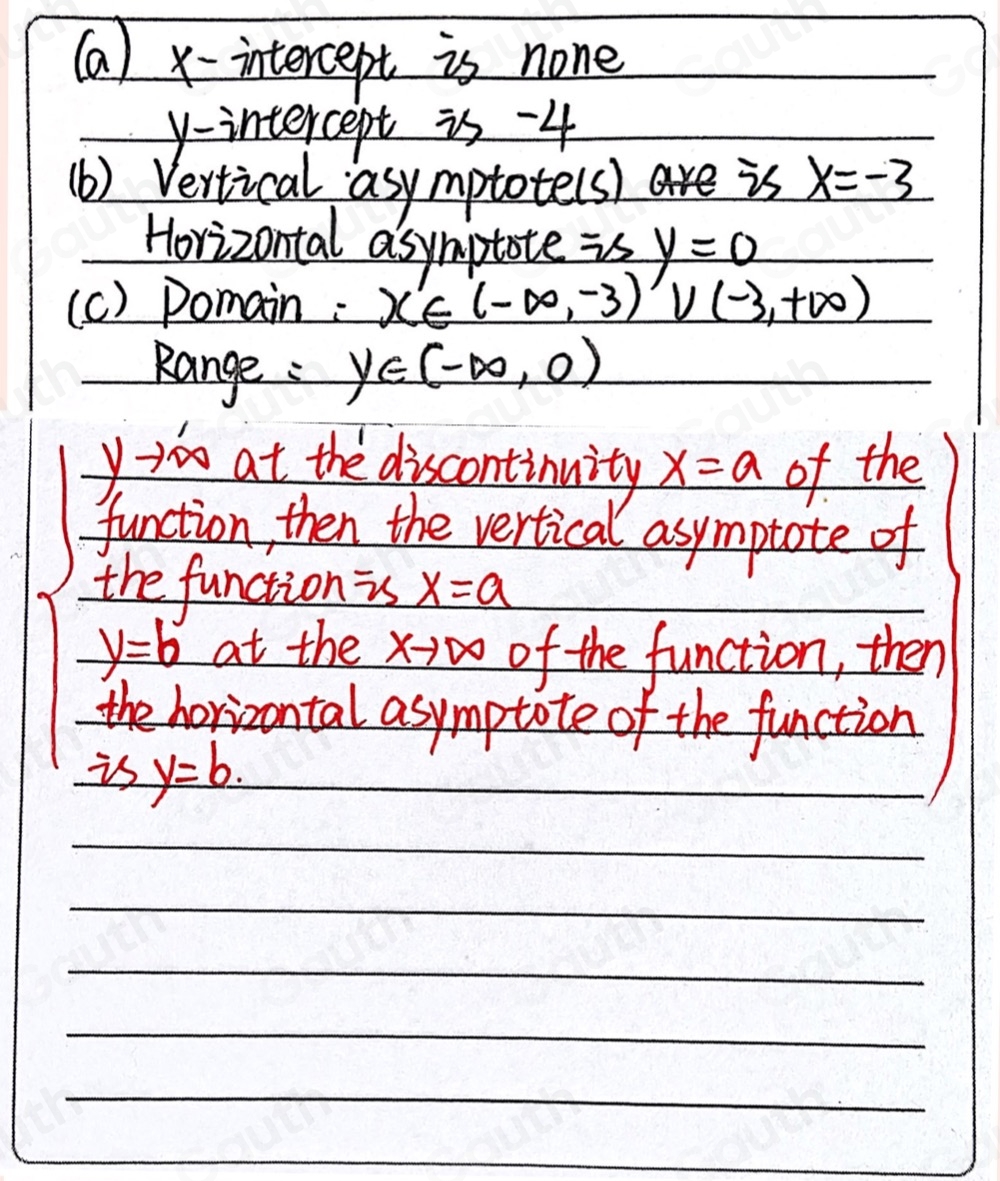 (a) x-intercept is none
y-intercept is -4
(b) Vertical asymptote(s) are is x=-3
Horizontal asymptote is y=0
(c) Domain: x∈(-∞,-3)∪(-3,+∞)
Range: y∈(-∞,0)
y→∞ at the discontinuity x=a of the
function, then the vertical asymptote of
the function is x=a
y=b at the x→∞ of the function, then
the horizontal asymptote of the function
is y=b.